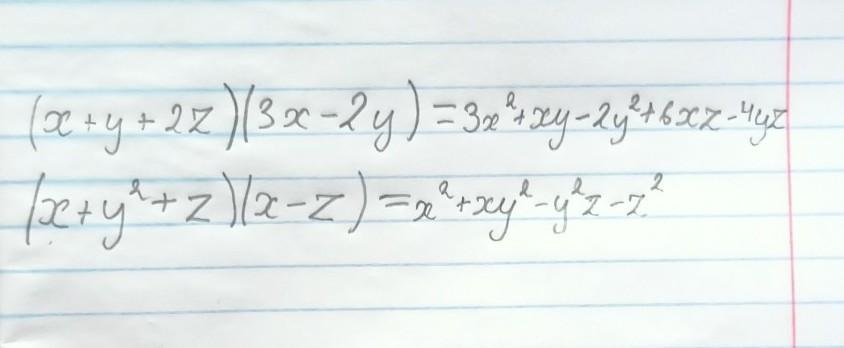 (x+y+2z)(3x-2y)=3x²+xy-2y²+6xz-4yz
(x+y²+z)(x-z)=x²+xy²-y²z-z²